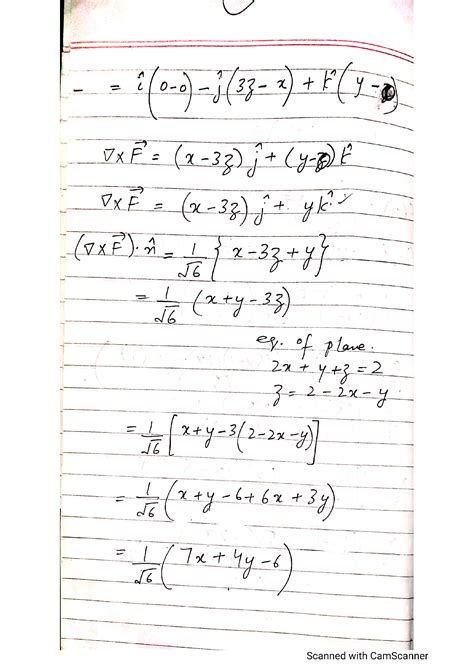 – = î(0-0) - ĵ(3z - x) + k̂(y -
∇×F⃗ = (x-3z) ĵ + (y- ) k̂
∇×F⃗ = (x-3z) ĵ + y k̂ ✓
(∇×F⃗)·n̂ = 1/√6 { x-3z+y }
= 1/√6 (x+y-3z)
eq. of plane.
2x + y + z = 2
z = 2-2x-y
= 1/√6 [x+y-3(2-2x-y)]
= 1/√6 (x+y-6+6x+3y)
= 1/√6 (7x+4y-6)
Scanned with CamScanner